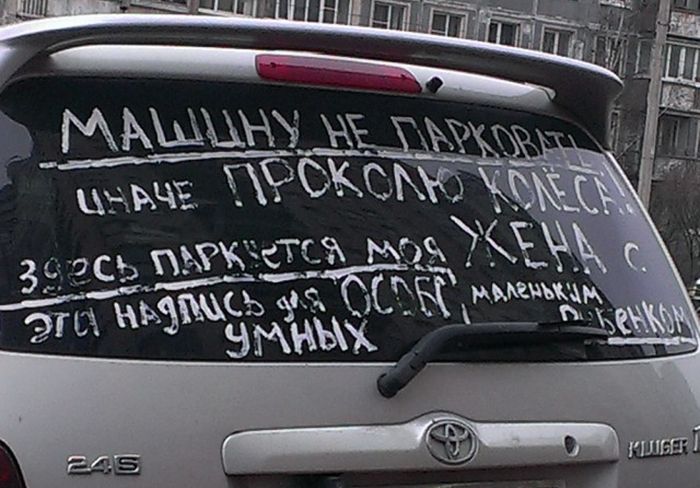 МАШИНУ НЕ ПАРКОВАТЬ!
ИНАЧЕ ПРОКОЛЮ КОЛЁСА!
ЗДЕСЬ ПАРКУЕТСЯ МОЯ ЖЕНА С
МАЛЕНЬКИМ
РЕБЕНКОМ
ЭТА НАДПИСЬ ДЛЯ ОСОБО
УМНЫХ
2.4 S
KLUGER